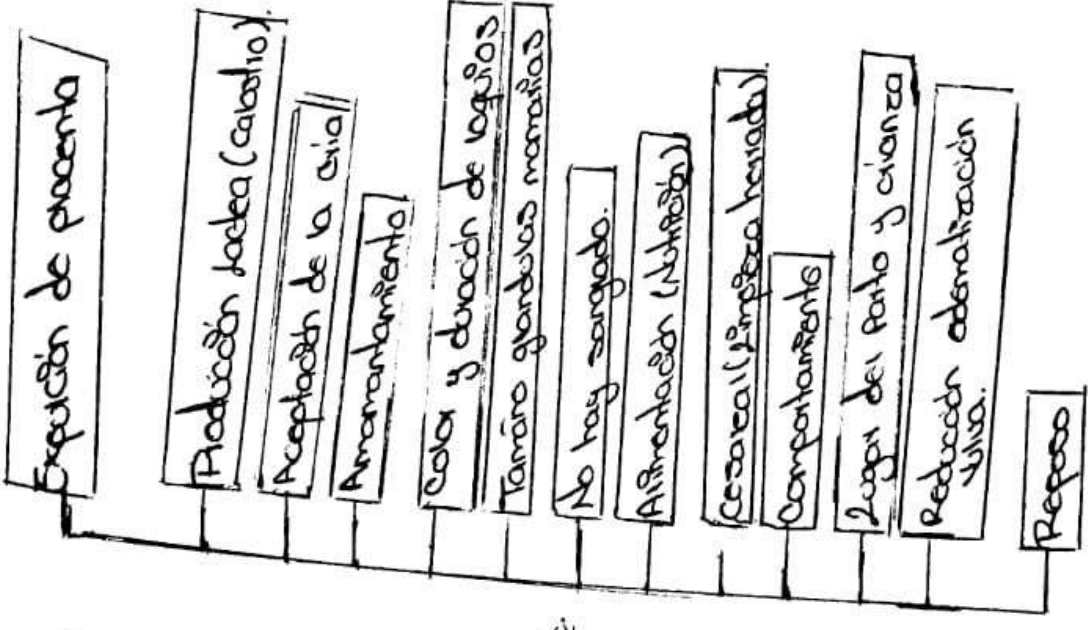 Expulsión de placenta
Producción Lactea (Calostro).
Aceptación de la cria
Amamantamiento
Color y duración de loquios
Tamaño glandulas mamarias
No hay sangrado.
Alimentación (Nutrición)
Cesarea (Limpieza herida)
Comportamiento
Lugar del Parto y crianza
Reducción
vulva.
Reposo